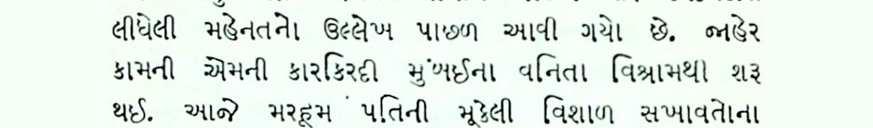 લીધેલી મહેનતનો ઉલ્લેખ પાછળ આવી ગયો છે. જાહેર
કામની એમની કારકિરદી મુંબઈના વનિતા વિશ્રામથી શરૂ
થઈ. આજે મરહૂમ પતિની મૂકેલી વિશાળ સખાવતોના